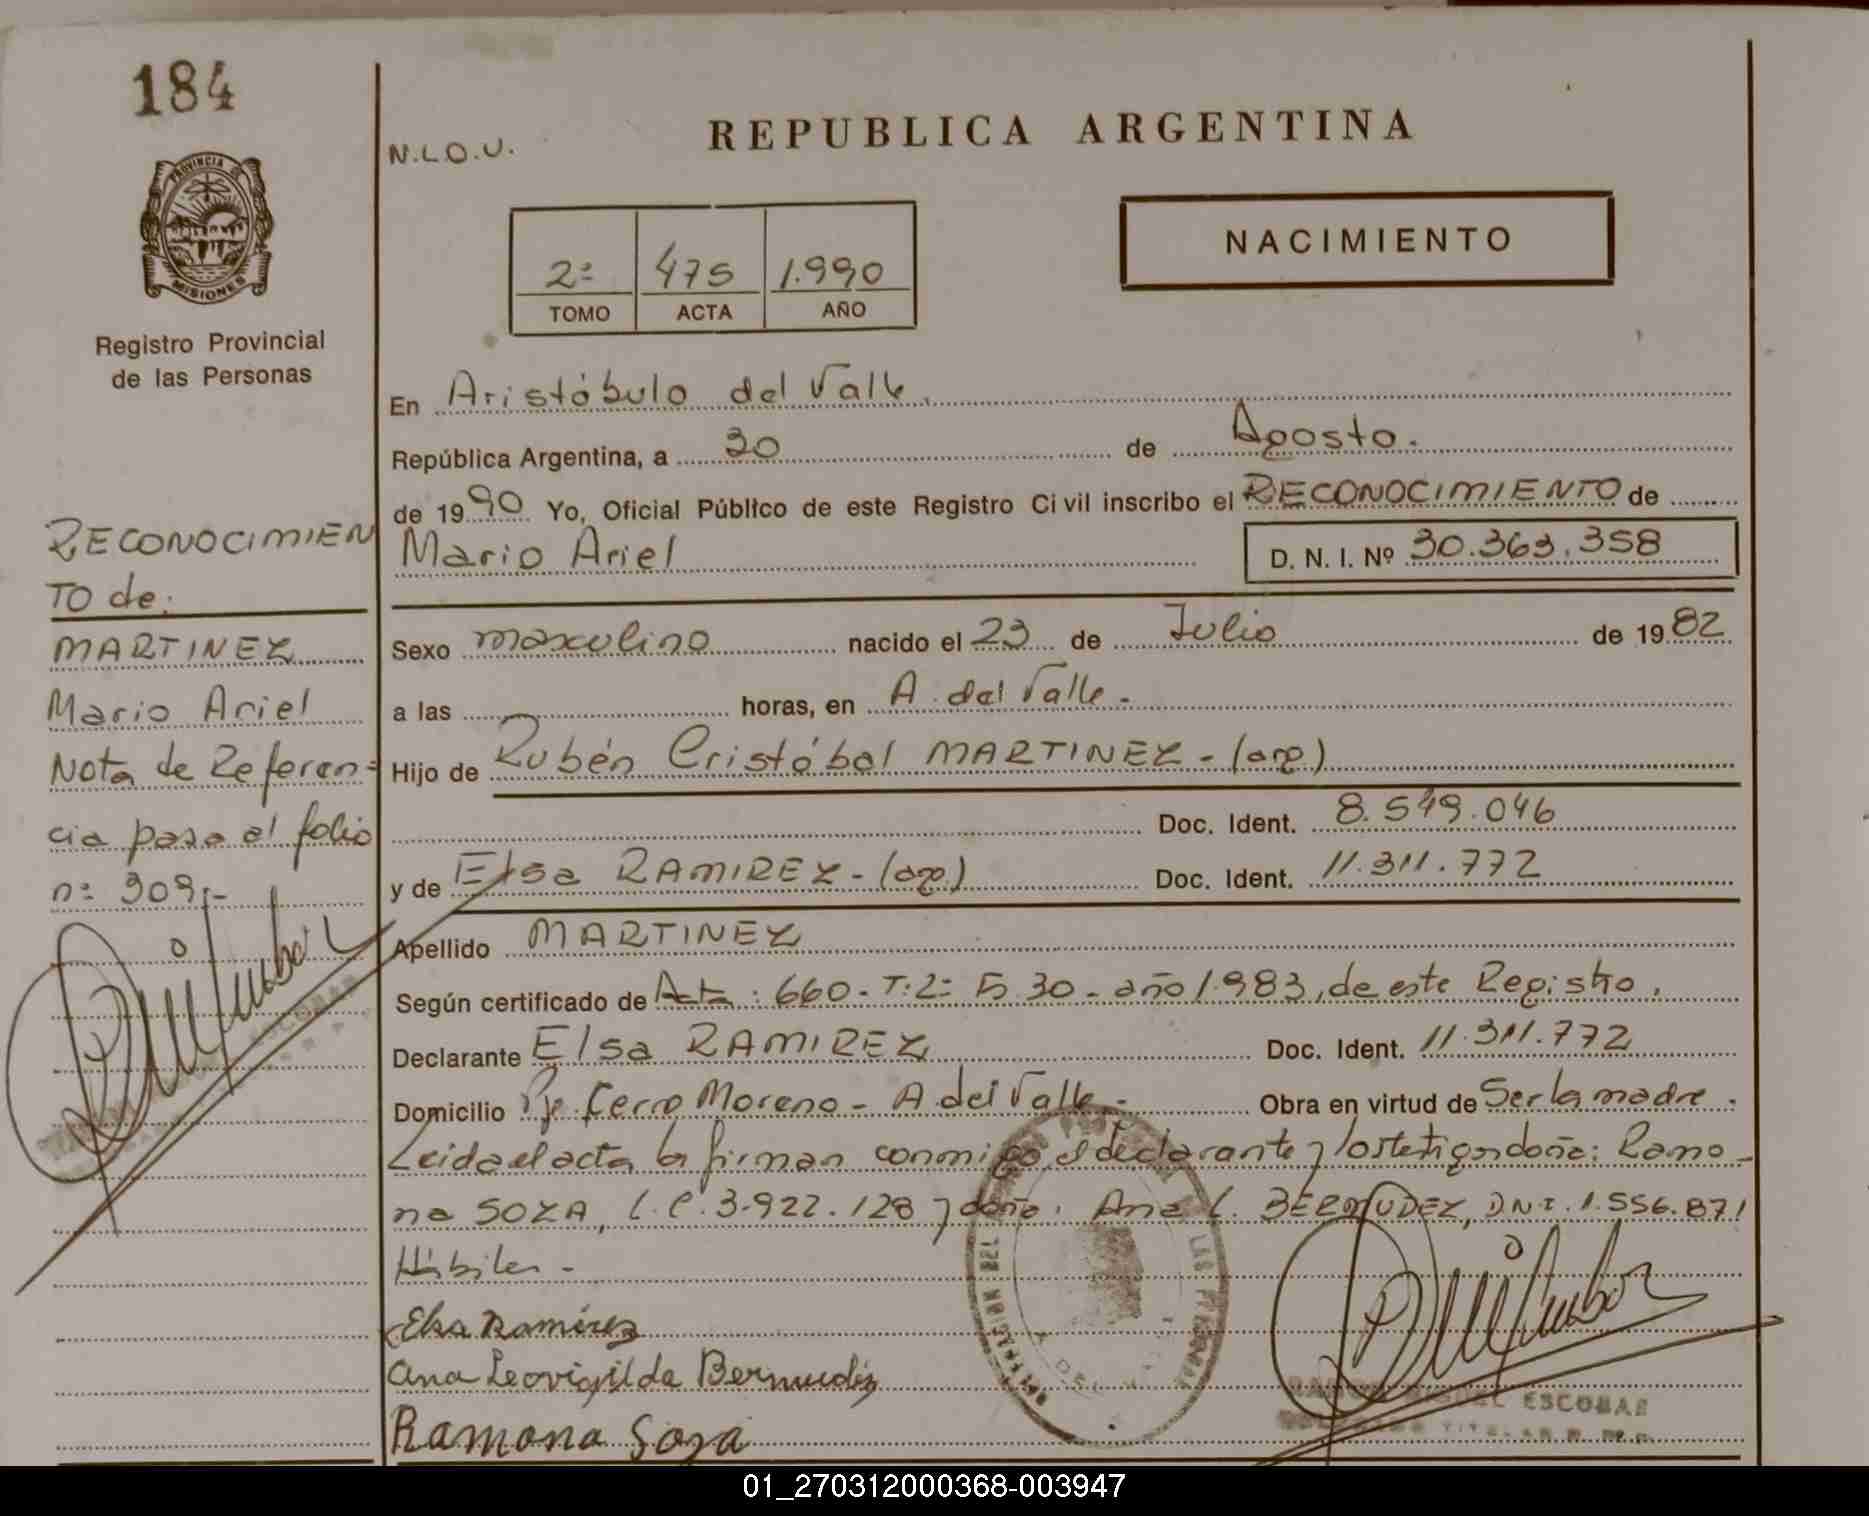 184
PROVINCIA DE
MISIONES
Registro Provincial
de las Personas
RECONOCIMIEN
TO de:
MARTINEZ
Mario Ariel
Nota de Referen=
cia pasa al folio
nº 309.-
N.L.O.U.
REPUBLICA ARGENTINA
2º 475 1.990
TOMO ACTA AÑO
NACIMIENTO
En Aristóbulo del Valle.
República Argentina, a 30 de Agosto.
de 1990 Yo, Oficial Público de este Registro Civil inscribo el RECONOCIMIENTO de
Mario Ariel D. N. I. Nº 30.363.358
Sexo masculino nacido el 23 de Julio de 1982
a las horas, en A. del Valle.-
Hijo de Rubén Cristóbal MARTINEZ - (arg)
Doc. Ident. 8.549.046
y de Elsa RAMIREZ - (arg) Doc. Ident. 11.311.772
Apellido MARTINEZ
Según certificado de Acta: 660- T:2= F. 30- año 1.983, de este Registro.
Declarante Elsa RAMIREZ Doc. Ident. 11.311.772
Domicilio Pje. Cerro Moreno - A del Valle.- Obra en virtud de Ser la madre.
Leida el acta la firman conmigo el declarante y los testigos doña: Ramo-
na SOZA, L.C. 3.922.128 y doña: Ana L. BERMUDEZ, D.N.I. 1.556.871
Hábiles -
Elsa Ramirez
Ana Leovigilda Bermudez
Ramona Soza
ESCOBAR
01_270312000368-003947